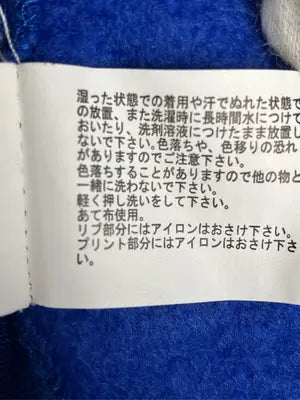 湿った状態での着用や汗でぬれた状態で
の放置、また洗濯時に長時間水につけて
おいたり、洗剤溶液につけたまま放置し
ないで下さい。色落ちや、色移りの恐れ
がありますのでご注意下さい。
色落ちすることがありますので他の物と
一緒に洗わないで下さい。
軽く押し洗いをして下さい。
あて布使用。
リブ部分にはアイロンはおさけ下さい。
プリント部分にはアイロンはおさけ下さ
い。